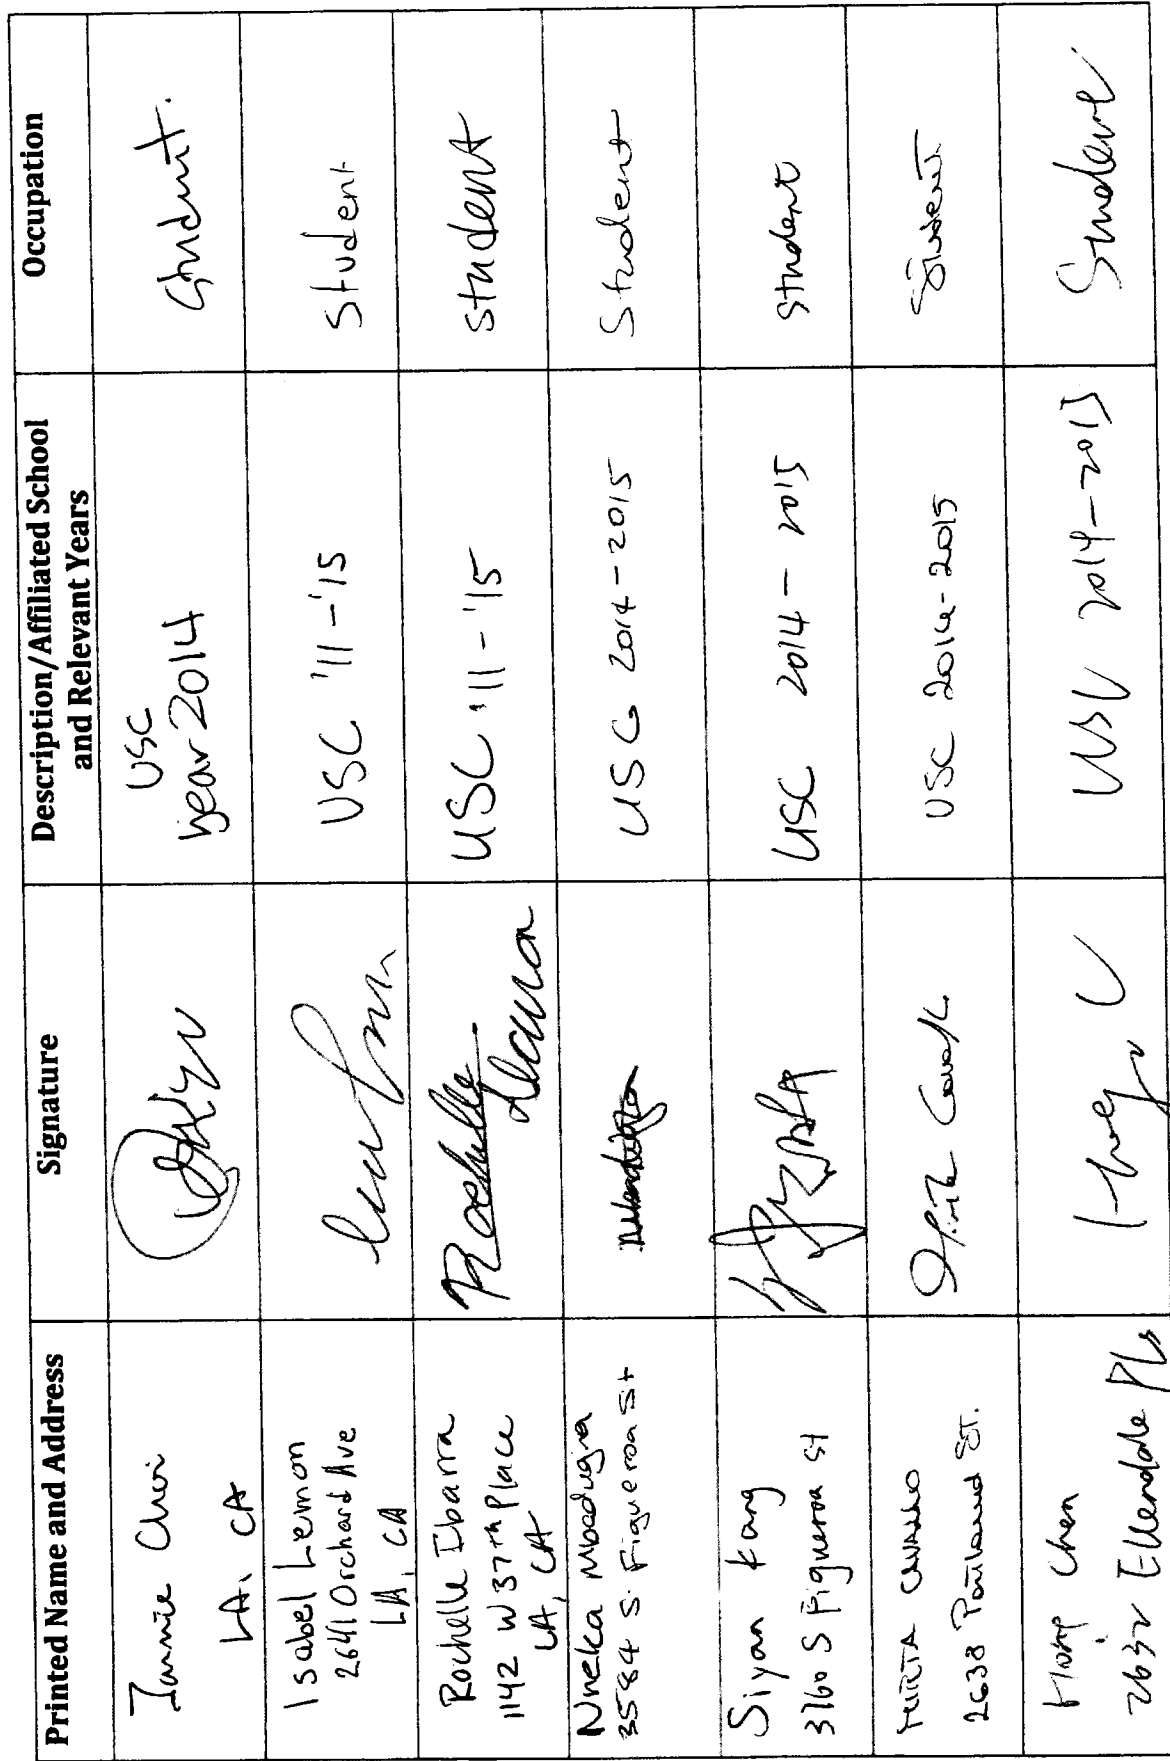 Printed Name and Address
Signature
Description/Affiliated School
and Relevant Years
Occupation
LA, CA
USC
year 2014
Student.
Isabel Lemon
2641 Orchard Ave
LA, CA
USC '11 - '15
Student
Rochelle Ibarra
1142 W 37th Place
LA, CA
Rochelle
Ibarra
USC '11 - '15
student
Nneka Mbadugha
3584 S. Figueroa St
USC 2014 - 2015
Student
Siyan Kang
3760 S Figueroa St
USC 2014 - 2015
student
2638 Portland ST.
USC 2014-2015
Student
Chen
2632 Ellendale Pl
USC 2014-2015
Student